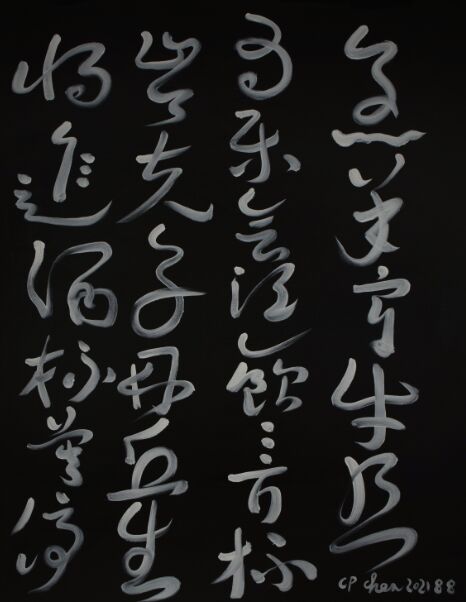 烹羊宰牛且
為樂會須一飲三百杯
岑夫子丹丘生
將進酒杯莫停
CP Chen 2021 8 8